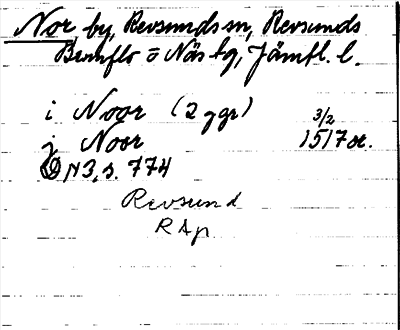 Nor, by, Revsunds sn, Revsunds
Brunflo o Näs tg, Jämtl. l.
i Noor (2 ggr) 3/2
j Noor 1517 or.
DN3, s. 774
Revsund
RAp